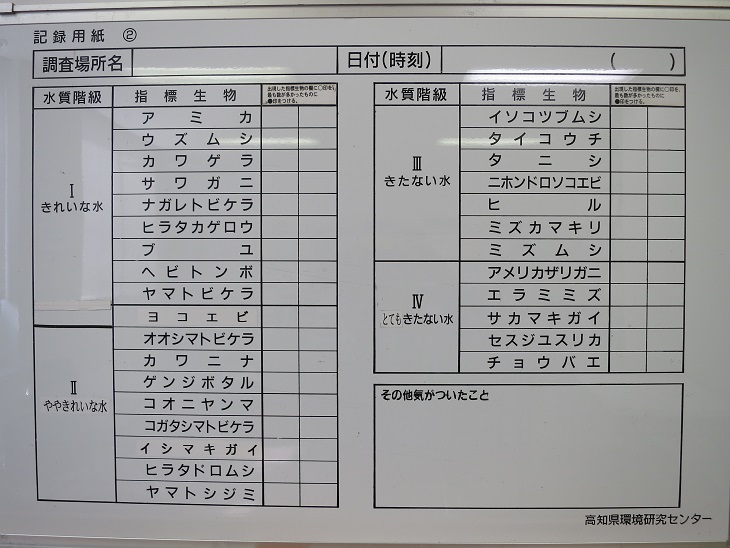 記録用紙 ②
調査場所名 日付(時刻) ( )
水質階級 指標生物 出現した指標生物の欄に○印を、
最も数が多かったものに
●印をつける。
Ⅰ
きれいな水
アミカ
ウズムシ
カワゲラ
サワガニ
ナガレトビケラ
ヒラタカゲロウ
ブユ
ヘビトンボ
ヤマトビケラ
ヨコエビ
Ⅱ
ややきれいな水
オオシマトビケラ
カワニナ
ゲンジボタル
コオニヤンマ
コガタシマトビケラ
イシマキガイ
ヒラタドロムシ
ヤマトシジミ
水質階級 指標生物 出現した指標生物の欄に○印を、
最も数が多かったものに
●印をつける。
Ⅲ
きたない水
イソコツブムシ
タイコウチ
タニシ
ニホンドロソコエビ
ヒル
ミズカマキリ
ミズムシ
Ⅳ
とてもきたない水
アメリカザリガニ
エラミミズ
サカマキガイ
セスジユスリカ
チョウバエ
その他気がついたこと
高知県環境研究センター